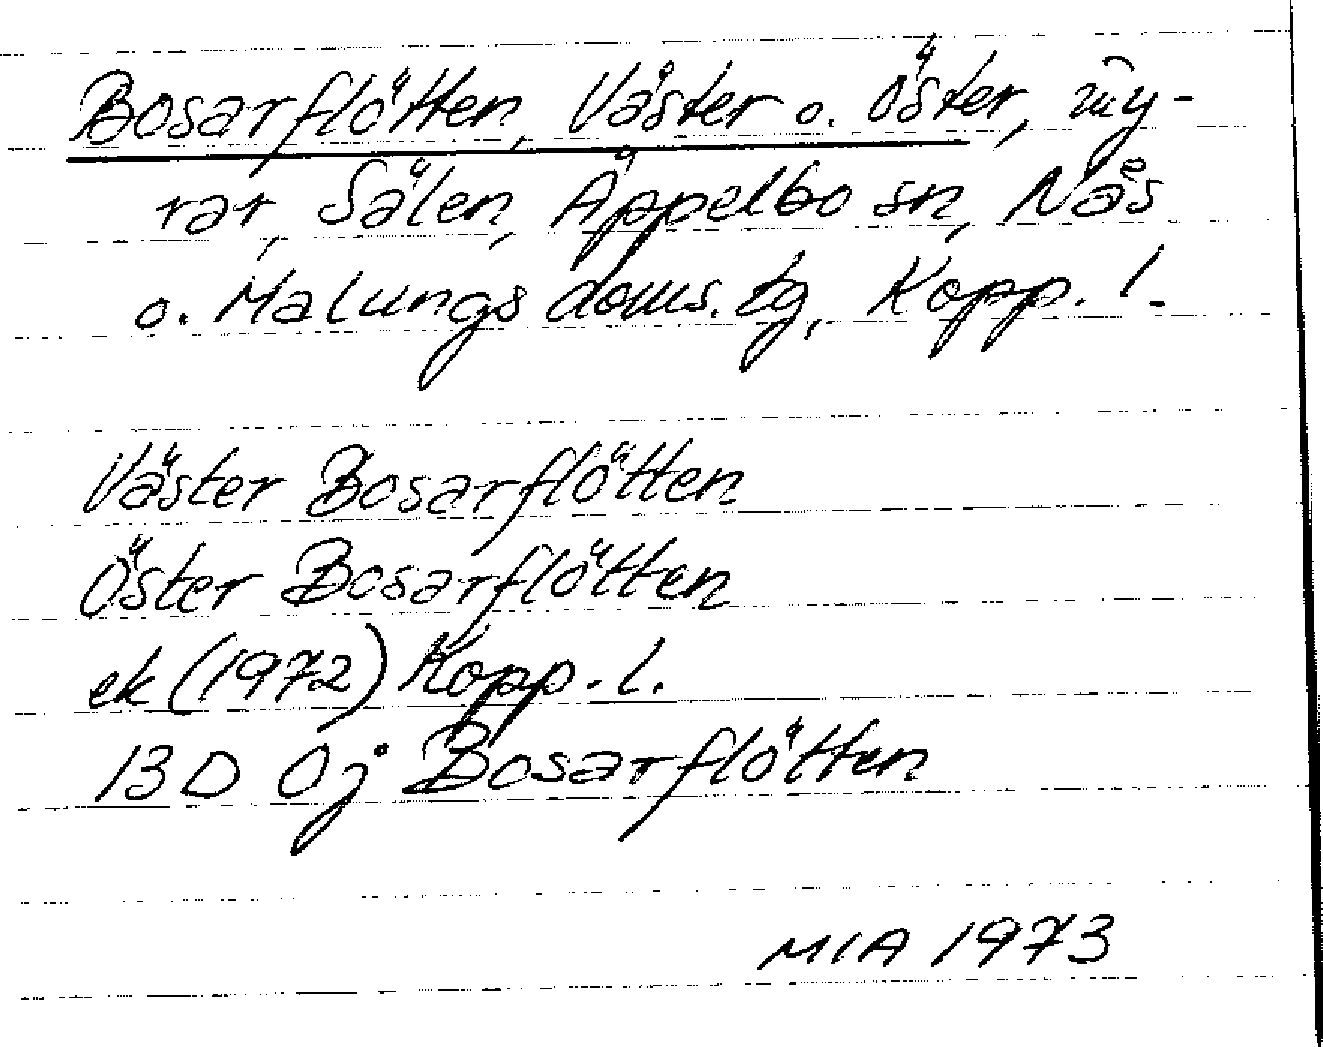 Bosarflötten, Väster o. Öster, my-
rar, Sälen, Äppelbo sn, Nås
o. Malungs doms. tg, Kopp. l.
Väster Bosarflötten
Öster Bosarflötten
ek (1972) Kopp. l.
13 D 0j Bosarflötten
MIA 1973